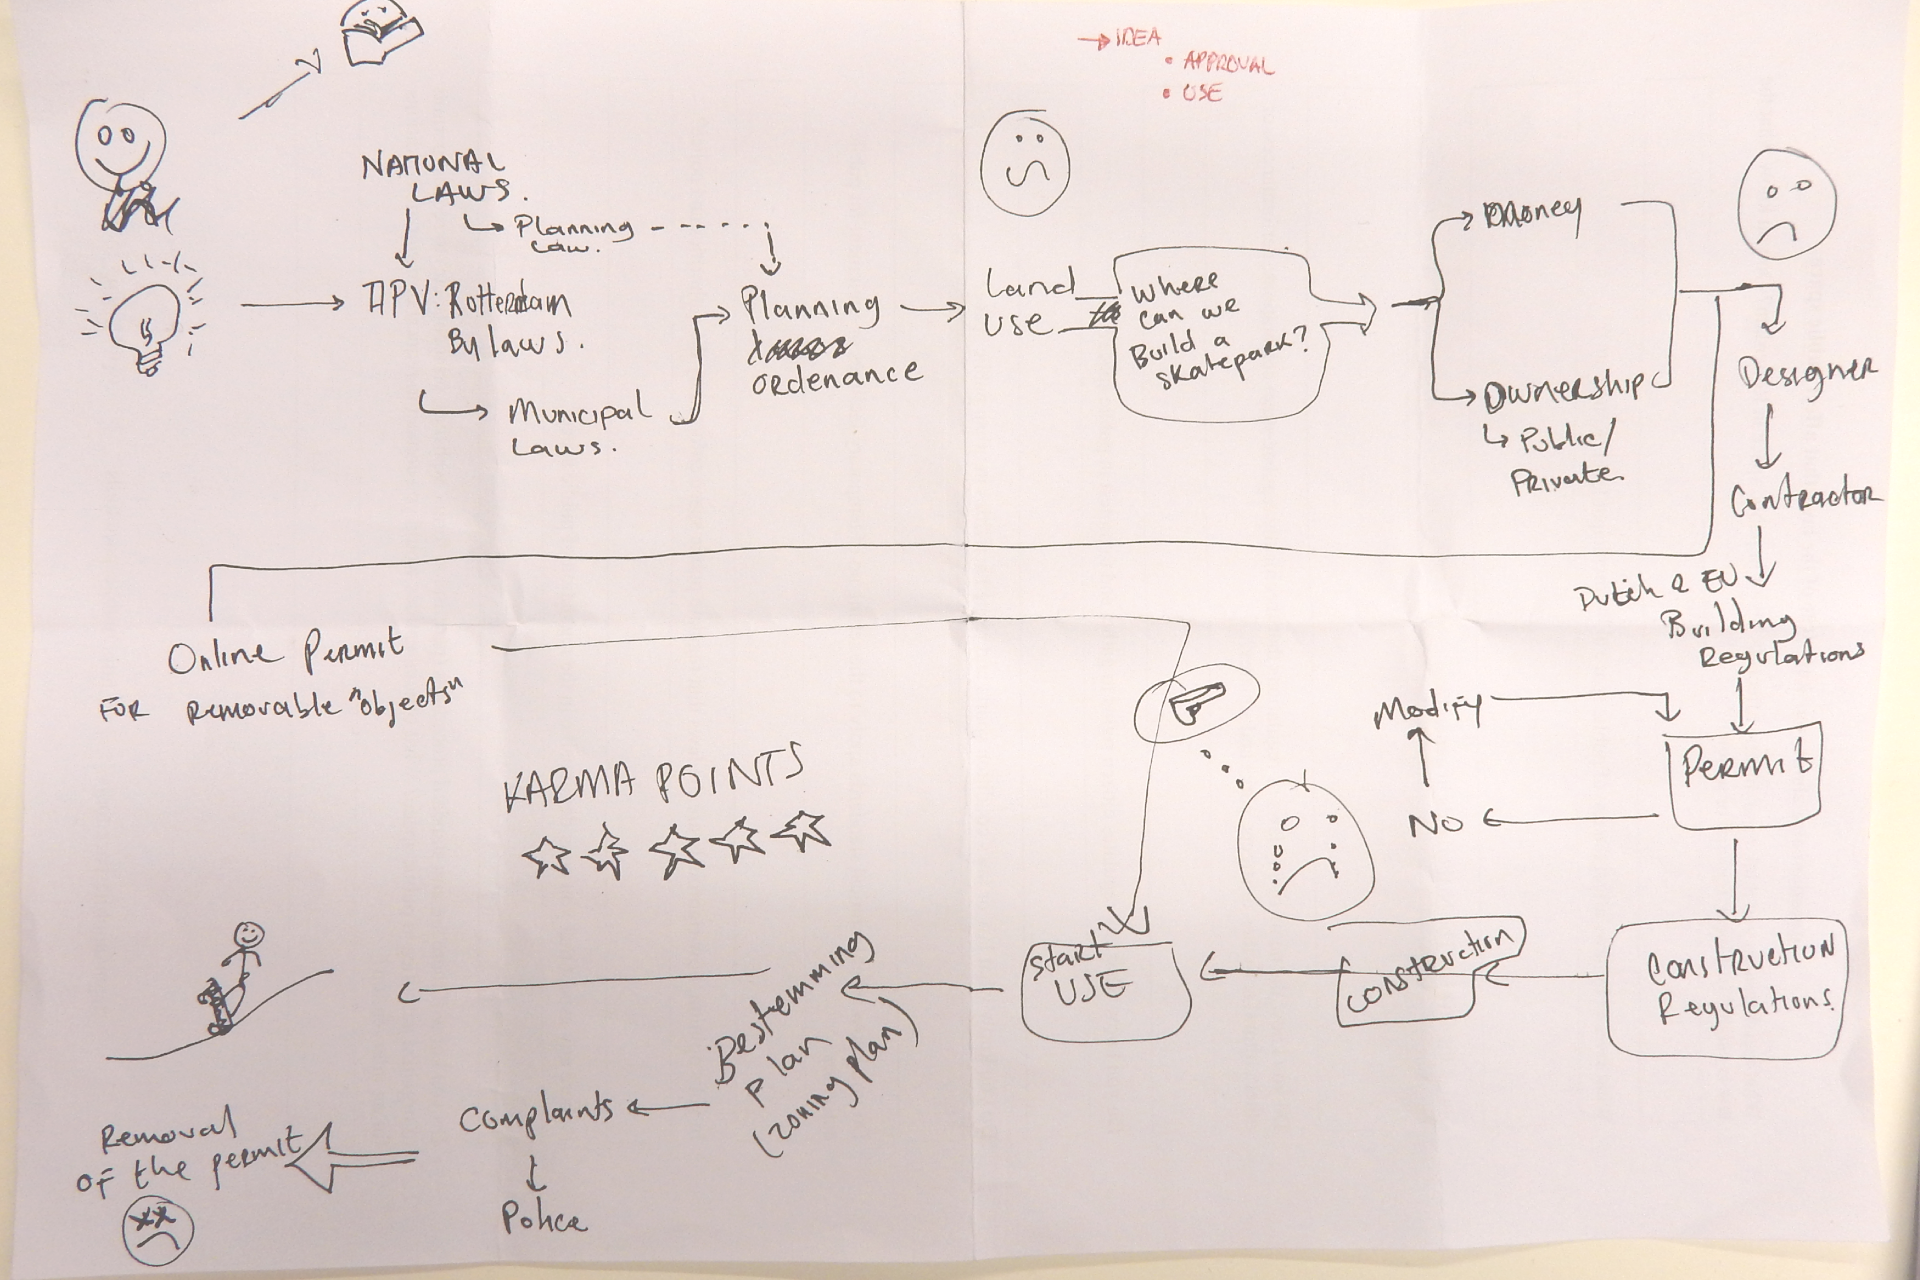 → IDEA
• APPROVAL
• USE
NATIONAL
LAWS.
↳ Planning
Law.
APV: Rotterdam
Bylaws.
Municipal
Laws.
Planning
ordenance
Land
use
Where
can we
Build a
skatepark?
Money
Ownership
↳ Public/
Private.
Designer
Contractor
Dutch & EU
Building
Regulations
Online Permit
FOR Removable "objects"
Modify
Permit
NO
KARMA POINTS
Start
USE
Construction
Construction
Regulations.
Bestemming
plan
(zoning plan)
Complaints
Police
Removal
OF the permit